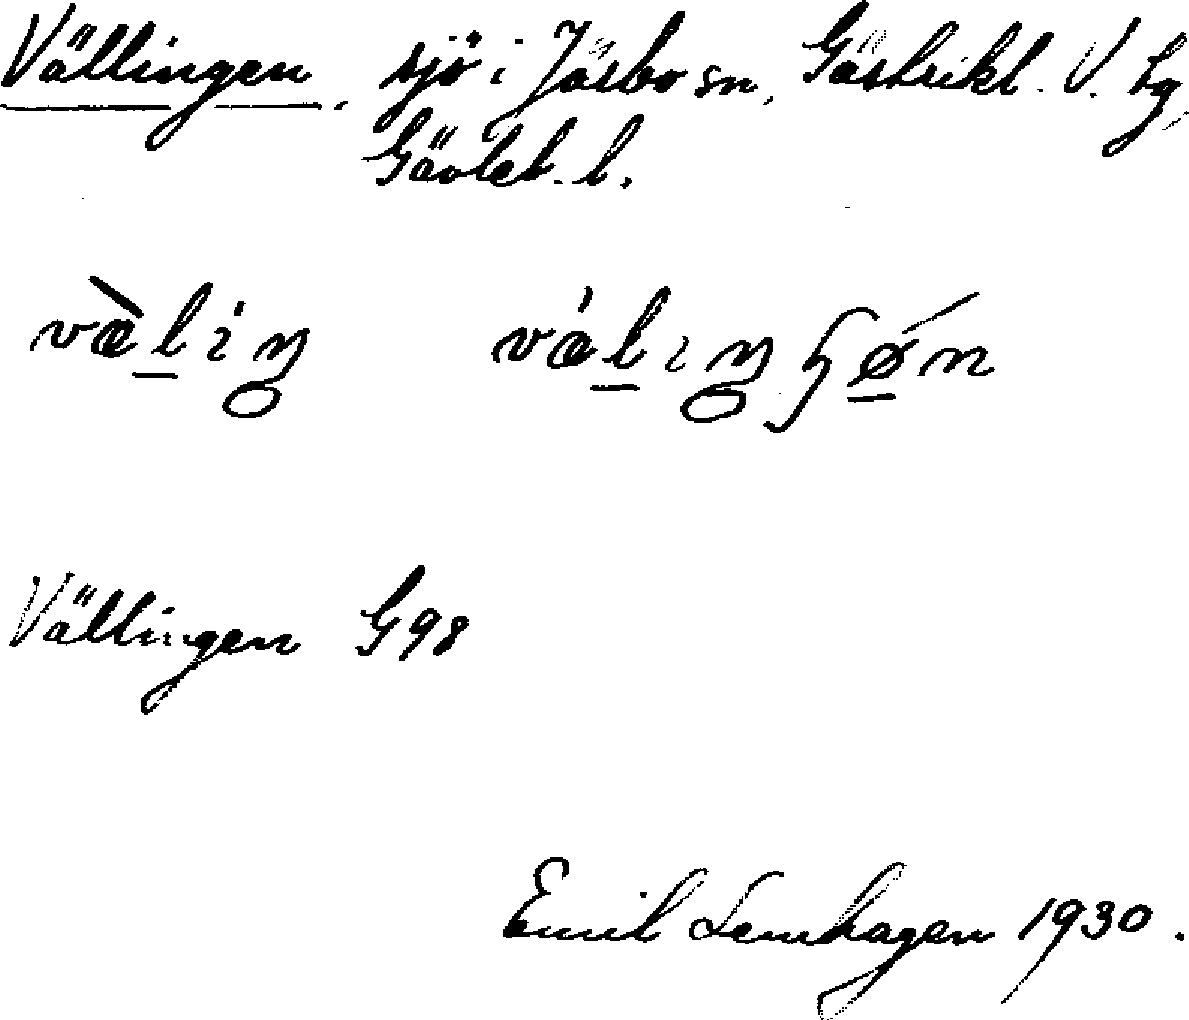 Vällingen. sjö i Järbo sn, Gästrikl. V. tg,
Gävleb. l.
væ̀liŋ váliŋʂøn
Vällingen G98
Emil Lemhagen 1930.